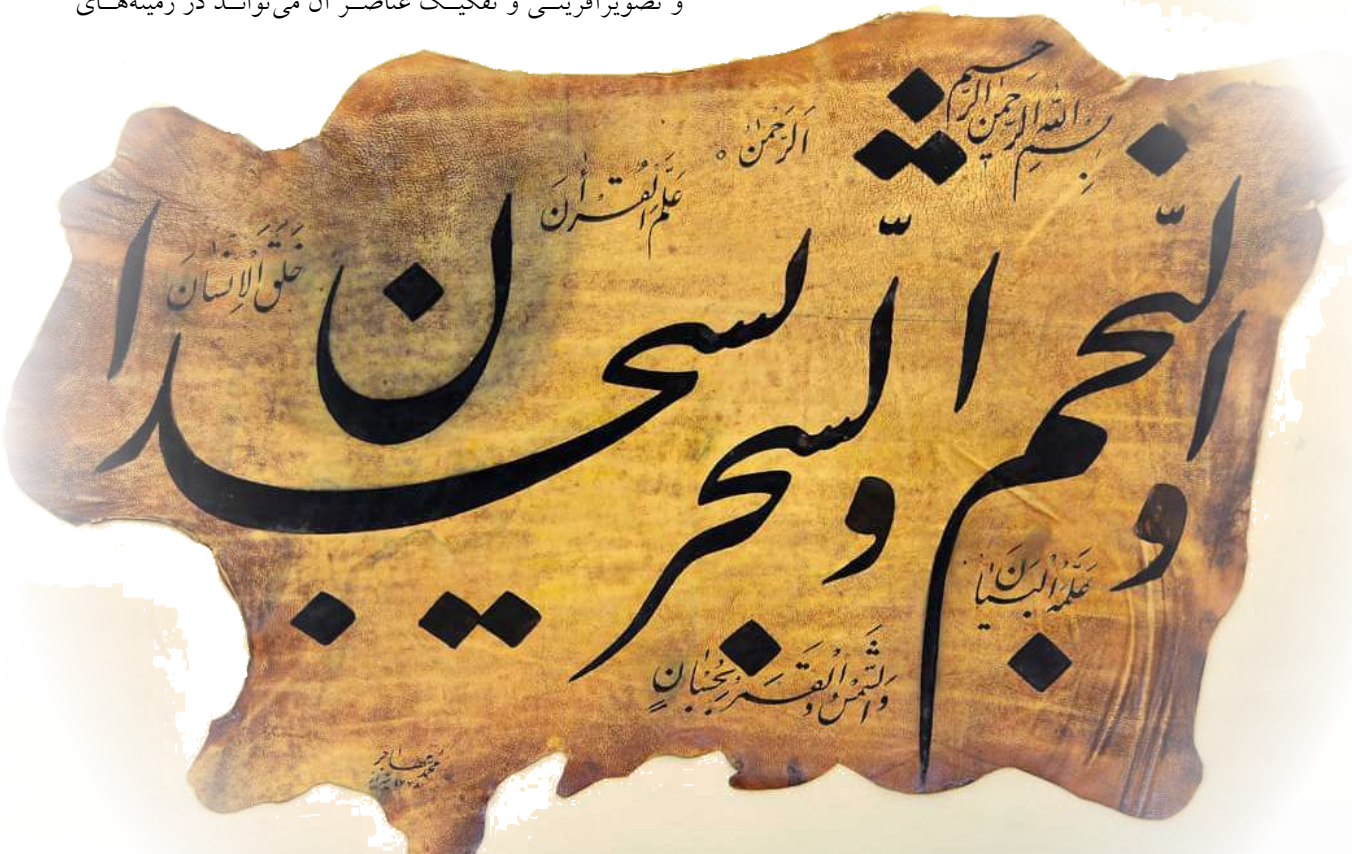 و تصویرآفرینی و تفکیک عناصر آن می‌تواند در زمینه‌های
بسم الله الرحمن الرحیم
الرحمن
علم القرأن
خلق الانسان
علمه البیان
والشمس والقمر بحسبان
والنجم والشجر یسجدان